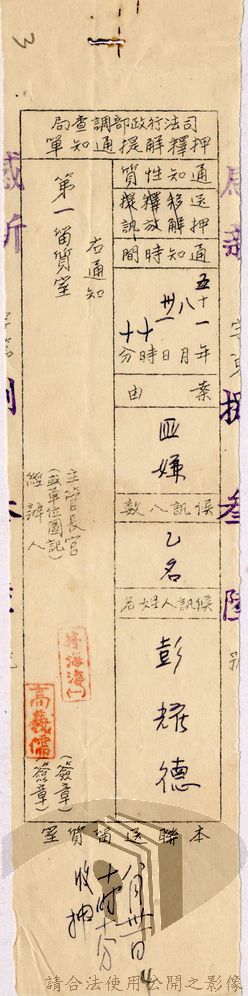 3
司法行政部調查局
押釋解提通知單
通知性質
送押 移解 釋放 提訊
通知時間
五十一年八月卅一日十時十分
案由
匪嫌
候訊人數
乙名
候訊人姓名
彭耀德
右通知
第一留質室
主管長官
(或單位圖記)
經辦人
高義儒
(簽章)
(簽章)
本聯送留質室
八月卅一日
十時十分
收押
請合法使用公開之影像